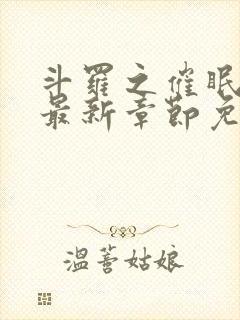 斗羅之催眠
最新章節免
溫蓍姑娘